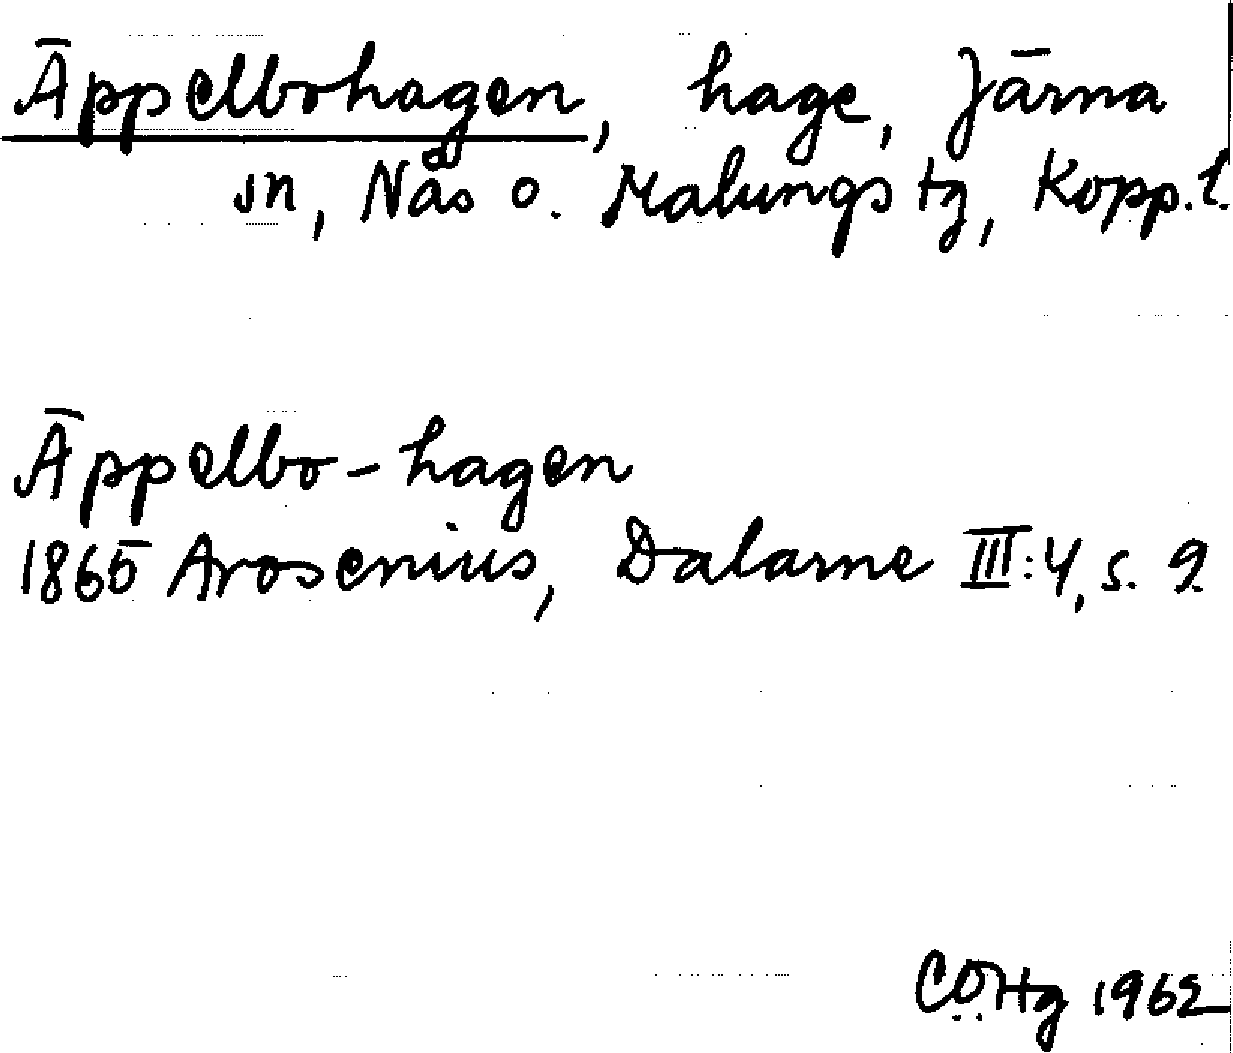 Äppelbohagen, hage, Järna
sn, Nås o. Malungs tg, Kopp. l.
Äppelbo-hagen
1865 Arosenius, Dalarne III:4, s. 9
1962